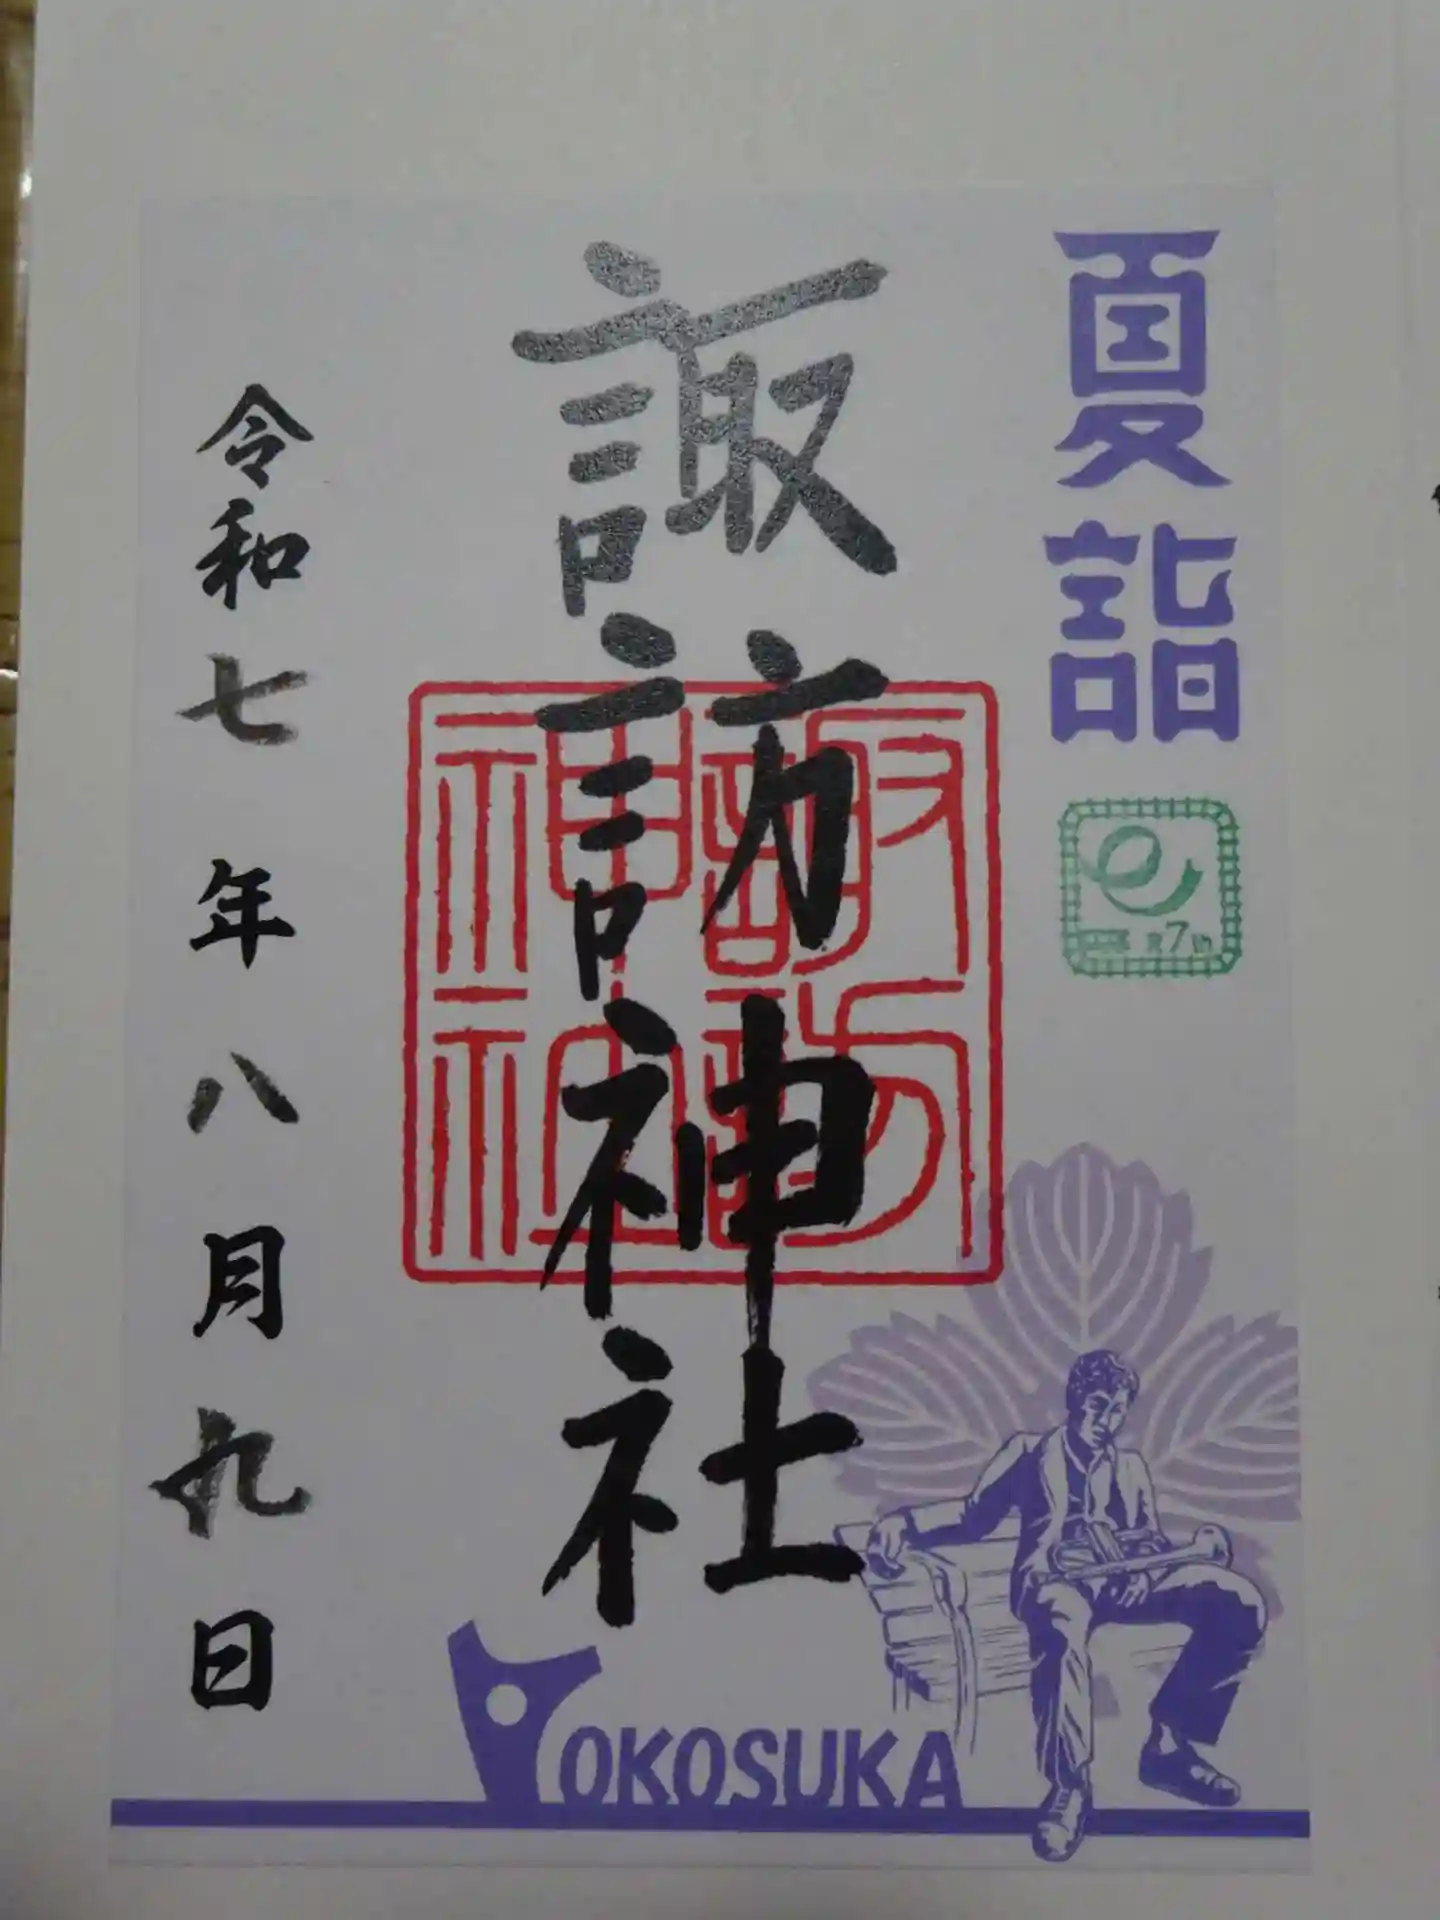 夏詣
諏訪神社
諏訪
神社
令和七年八月九日
7th
YOKOSUKA